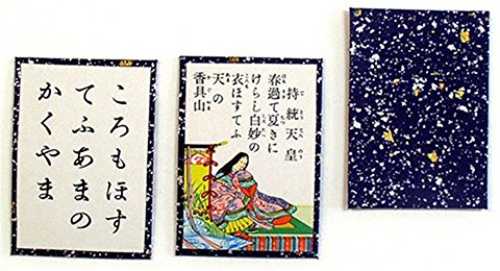 ころもほす
てふあまの
かくやま
持統天皇
春過て夏きに
けらし白妙の
衣ほすてふ
天の
香具山